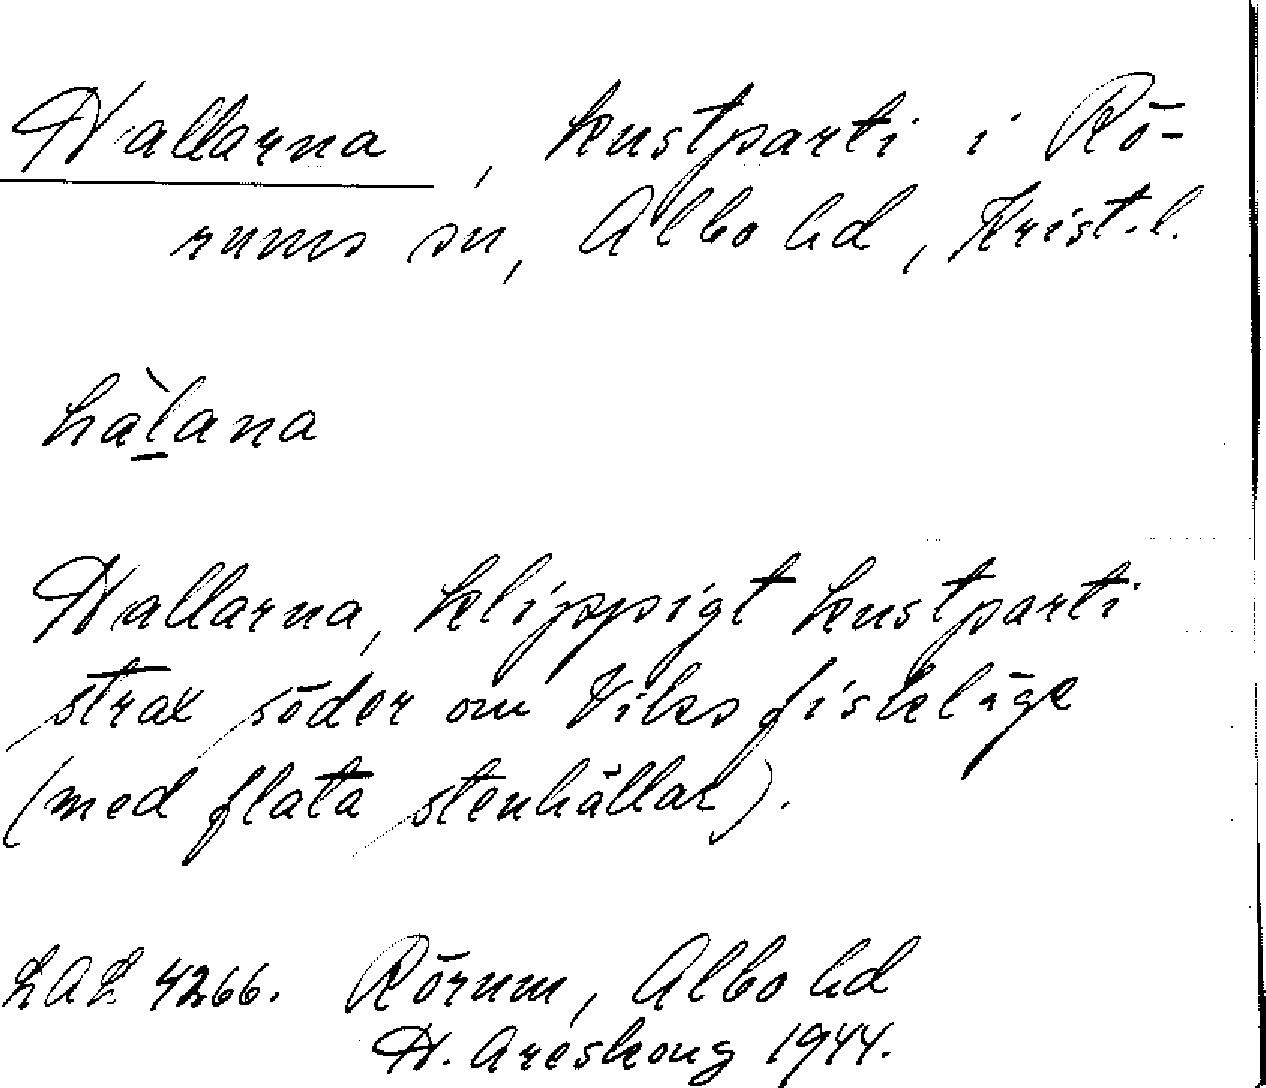 Hallarna, kustparti i Rö-
rums sn, Albo hd, Krist. l.
hàl̲ana
Hallarna, klippigt kustparti
strax söder om Viks fiskläge
(med flata stenhällar).
LAL 4266. Rörum, Albo hd
H. Areskoug 1944.